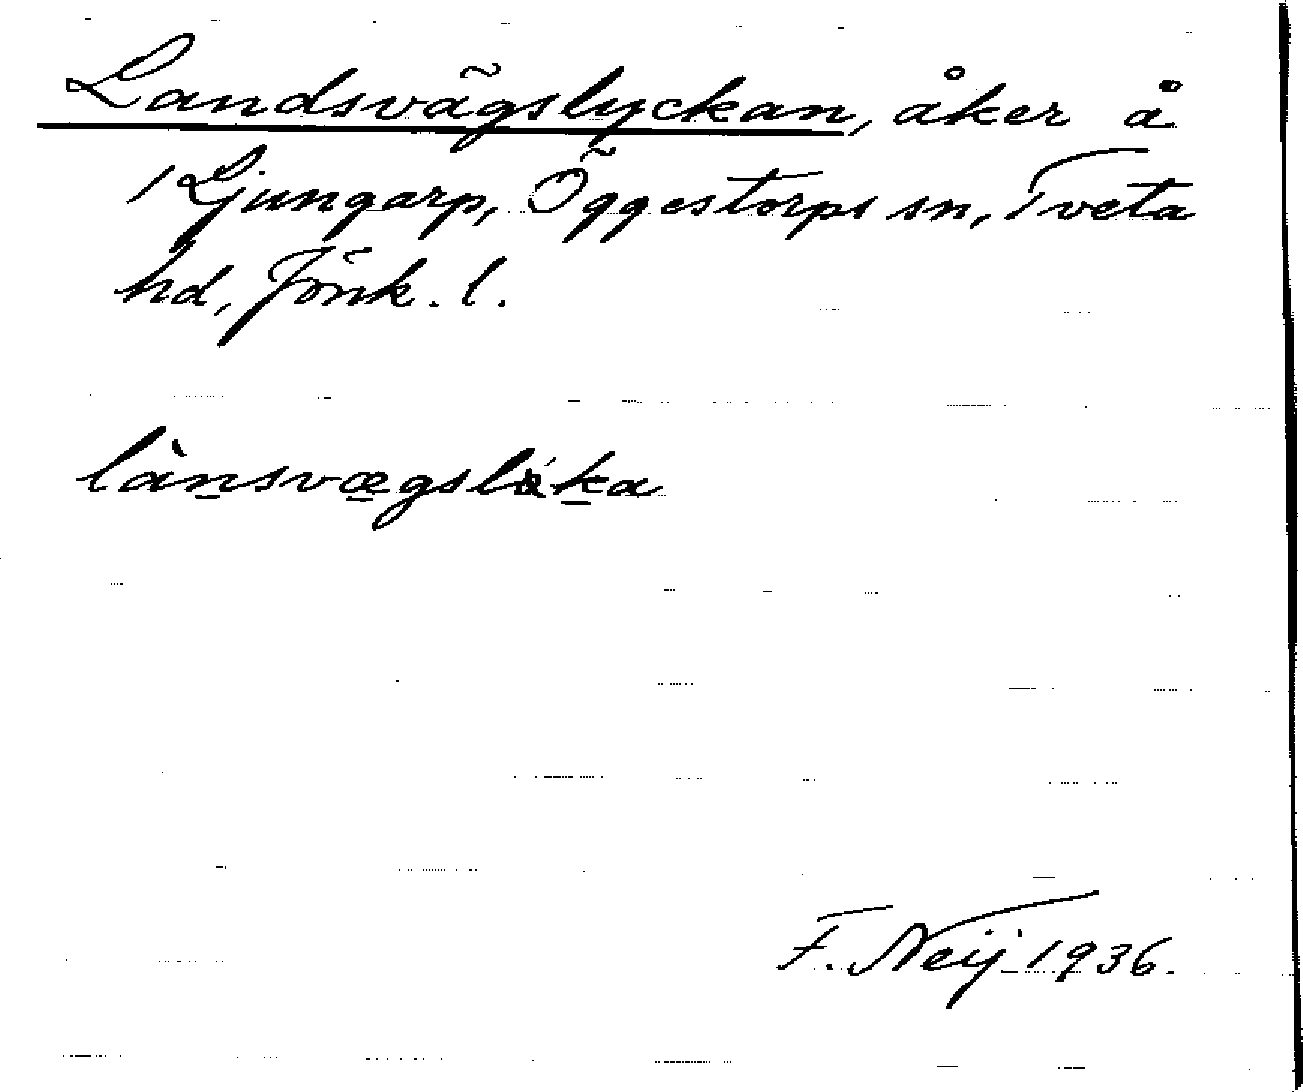 Landsvägslyckan, åker å
1 Ljungarp, Öggestorps sn, Tveta
hd, Jönk. l.
F. Neij 1936.